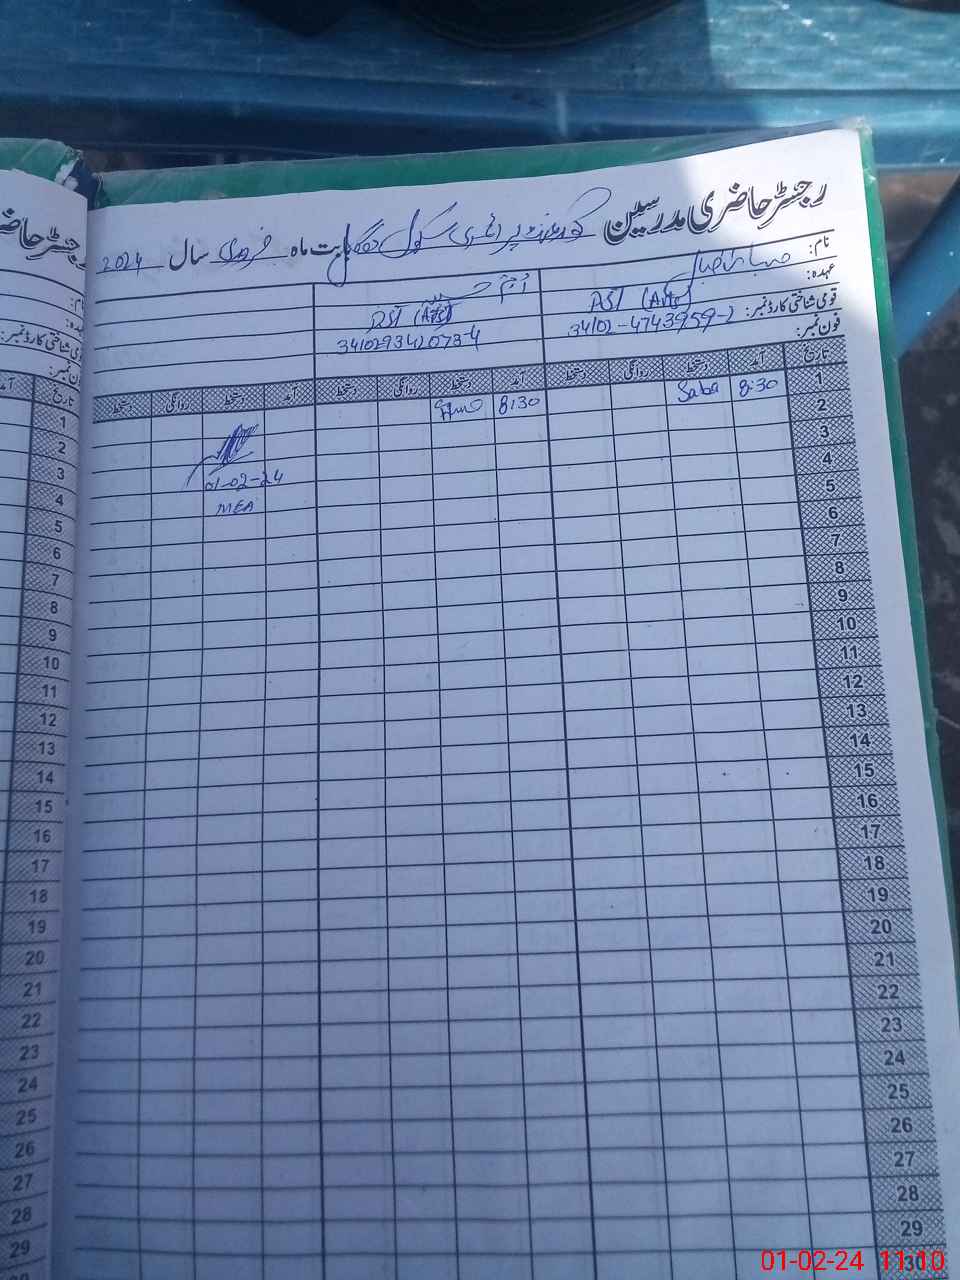 رجسٹر حاضری مدرسین گورنمنٹ پرائمری سکول بابت ماہ فروری سال 2024
نام:
عہدہ: PST (Arts) PST (Arts)
قومی شناختی کارڈ نمبر: 34102-4743959-2 341029342073-4
فون نمبر:
تاریخ آمد دستخط روانگی دستخط آمد دستخط روانگی دستخط آمد دستخط روانگی دستخط
1 8:30 Saba 8:30
2
3
01-02-24
4
MEA
5
6
7
8
9
10
11
12
13
14
15
16
17
18
19
20
21
22
23
24
25
26
27
28
29
30
رجسٹر حاضری
نام:
عہدہ:
قومی شناختی کارڈ نمبر:
فون نمبر:
تاریخ
1
2
3
4
5
6
7
8
9
10
11
12
13
14
15
16
17
18
19
20
21
22
23
24
25
26
27
28
29
01-02-24 11:10